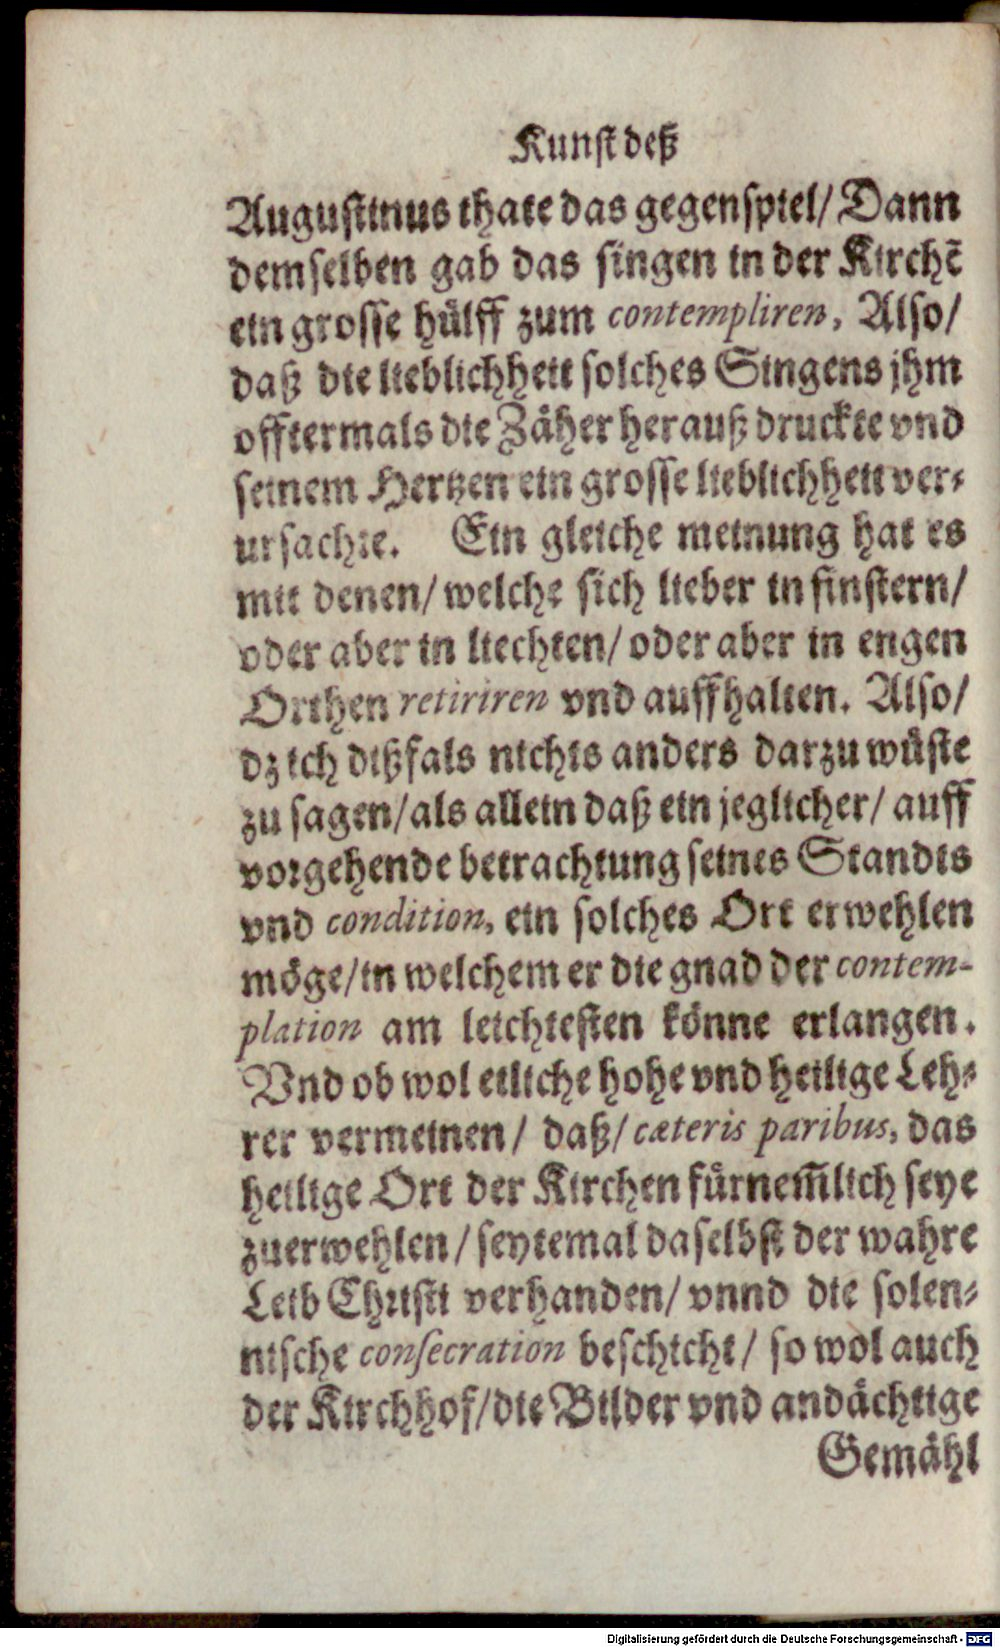 Kunst deß
Augustinus thate das gegenspiel/ Dann
demselben gab das singen in der Kirchẽ
ein grosse hülff zum contempliren, Also/
daß die lieblichheit solches Singens jhm
offtermals die Zäher herauß druckte vnd
seinem Hertzen ein grosse lieblichheit ver-
ursachte. Ein gleiche meinung hat es
mit denen/ welche sich lieber in finstern/
oder aber in liechten/ oder aber in engen
Orthen retiriren vnd auffhalten. Also/
dz ich dißfals nichts anders darzu wüste
zu sagen/ als allein daß ein jeglicher/ auff
vorgehende betrachtung seines Standts
vnd condition, ein solches Ort erwehlen
möge/ in welchem er die gnad der contem-
plation am leichtesten könne erlangen.
Vnd ob wol etliche hohe vnd heilige Leh-
rer vermeinen/ daß/ cæteris paribus, das
heilige Ort der Kirchen fürnem̃lich seye
zuerwehlen/ seytemal daselbst der wahre
Leib Christi verhanden/ vnnd die solen-
nische consecration beschicht/ so wol auch
der Kirchhof/ die Bilder vnd andächtige
Gemähl
Digitalisierung gefördert durch die Deutsche Forschungsgemeinschaft - DFG